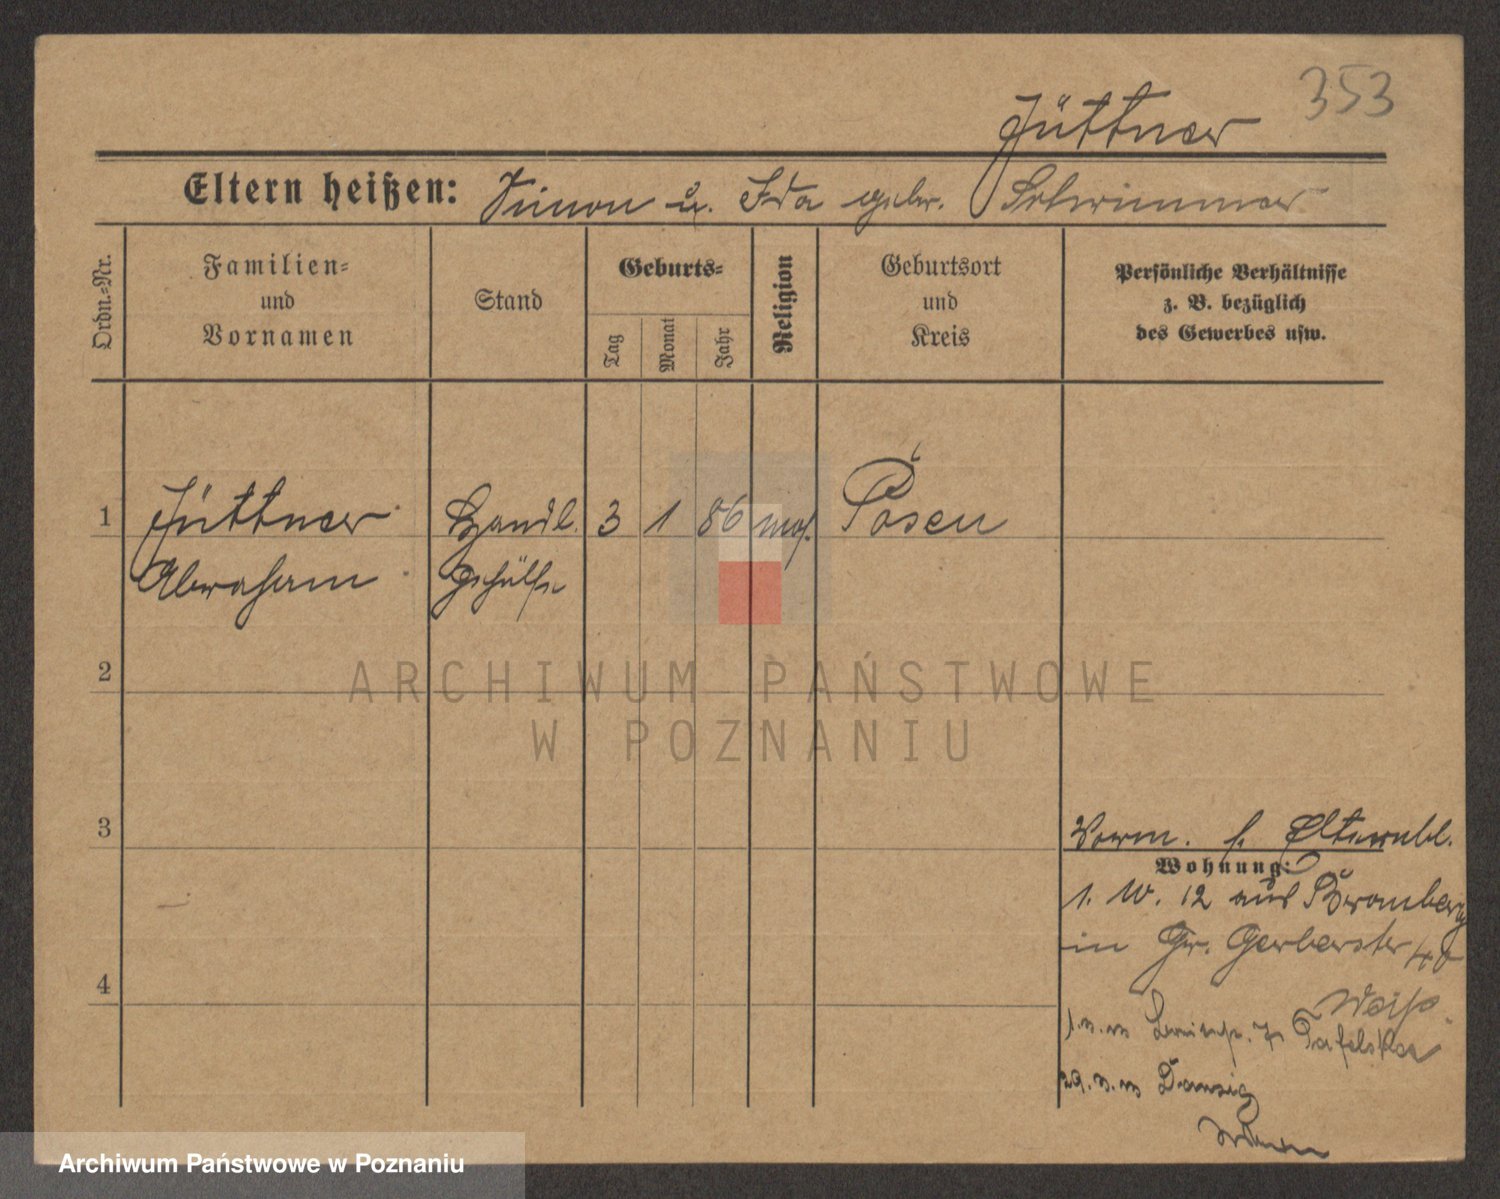 353
Jüttner
Eltern heißen: Simon u. Ida gebr. Schwimmer
Ordn.-Nr.
Familien- und Vornamen
Stand
Geburts-
Tag
Monat
Jahr
Religion
Geburtsort und Kreis
Persönliche Verhältnisse
z. B. bezüglich
des Gewerbes usw.
1 Jüttner Handl. 3 1 86 mos. Posen
Abraham Gehülfe
2
ARCHIWUM PAŃSTWOWE
W POZNANIU
3
Vorm. s. Elternbl.
Wohnung:
1. 10. 12 aus Bromberg
in Gr. Gerberstr 40
4
Weiss
Danzig
Archiwum Państwowe w Poznaniu